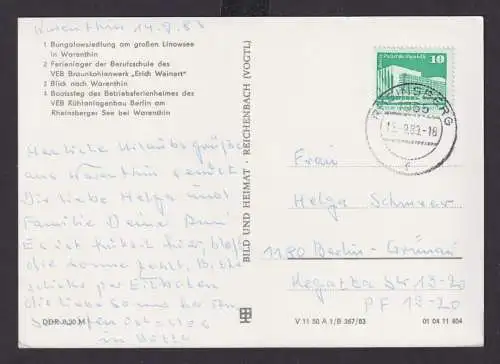 Warenthin 14.9.83
1 Bungalowsiedlung am großen Linowsee
in Warenthin
2 Ferienlager der Berufsschule des
VEB Braunkohlenwerk „Erich Weinert"
3 Blick nach Warenthin
4 Bootssteg des Betriebsferienheimes des
VEB Kühlanlagenbau Berlin am
Rheinsberger See bei Warenthin
Herzliche Urlaubsgrüße
aus Warenthin sendet
Dir liebe Helga und
Familie Deine
Es ist hier, bloß
die Sonne fehlt. Bitte
schicke per
die liebe Sonne her
in
DDR 0,20 M
BILD UND HEIMAT · REICHENBACH (VOGTL)
10
RHEINSBERG
1955
15.-9.83-18
Frau
Helga
1180 Berlin-Grünau
Regatta Str 19-20
PF 19-20
V 11 50 A 1/B 367/83
01 04 11 404